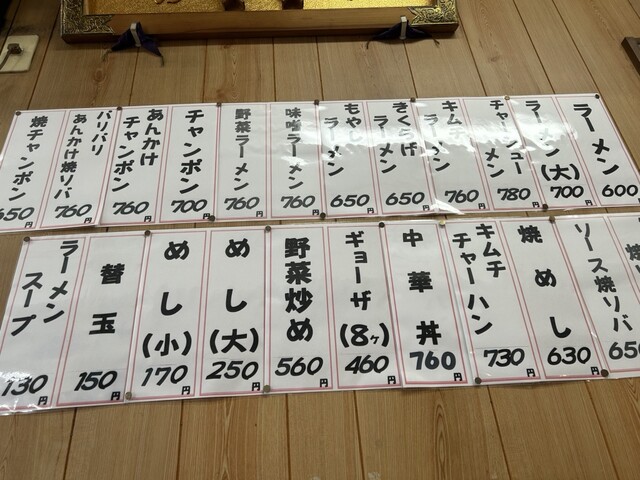 ラーメン
600円
ラーメン(大)
700円
チャーシューメン
780円
キムチラーメン
760円
きくらげラーメン
650円
もやしラーメン
650円
味噌ラーメン
760円
野菜ラーメン
760円
チャンポン
700円
あんかけ
チャンポン
760円
バリバリ
あんかけ焼リバ
760円
焼チャンポン
650円
ソース焼リバ
630円
焼めし
630円
キムチ
チャーハン
730円
中華丼
760円
ギョーザ(8ヶ)
460円
野菜炒め
560円
めし(大)
250円
めし(小)
170円
替玉
150円
ラーメン
スープ
130円